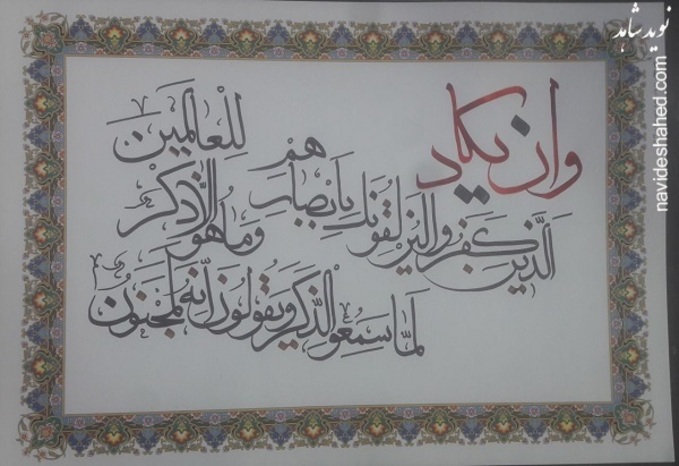 وان یکاد
الذین کفروا لیزلقونک بابصارهم
لما سمعوا الذکر ویقولون انه لمجنون
وما هو الا ذکر
للعالمین
نوید شاهد
navideshahed.com